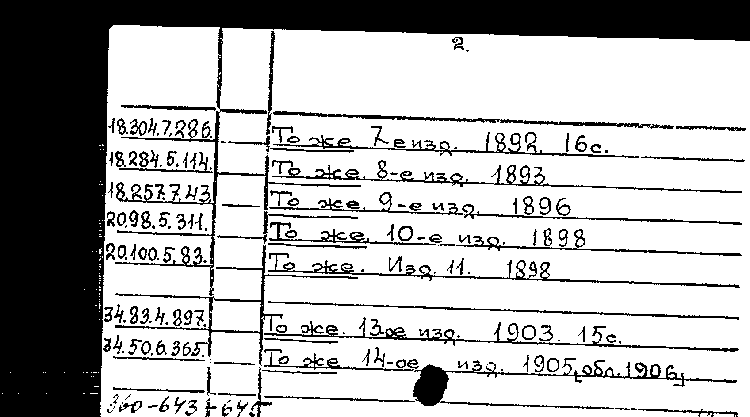 2.
18.304.7.286. То же. 7е изд. 1892. 16с.
18.284.5.114. То же. 8-е изд. 1893
18.257.7.43 То же. 9-е изд. 1896
20.98.5.311. То же. 10-е изд. 1898
20.100.5.83. То же. Изд. 11. 1898
34.83.4.897. То же. 13ое изд. 1903 15с.
34.50.6.365. То же 14-ое изд. 1905, [обл. 1906]
360-643 + 645